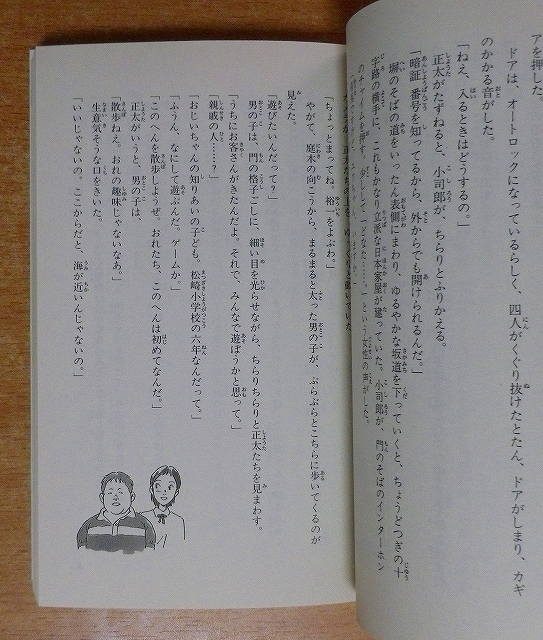 アを押した。
ドアは、オートロックになっているらしく、四人がくぐり抜けたとたん、ドアがしまり、カギ
のかかる音がした。
「ねえ、入るときはどうするの。」
正太がたずねると、小司郎が、ちらりとふりかえる。
「暗証番号を知ってるから、外からでも開けられるんだ。」
塀のそばの道をいったん表側にまわり、ゆるやかな坂道を下っていくと、ちょうどつぎの十
字路の横手に、これもかなり立派な日本家屋が建っていた。小司郎が、門のそばのインターホン
のチャイムを押す。少しして、「どなた……。」という女性の声がした。
「ちょっとまってね。裕一をよぶわ。」
やがて、庭木の向こうから、まるまると太った男の子が、ぶらぶらとこちらに歩いてくるのが
見えた。
「遊びたいんだって？」
男の子は、門の格子ごしに、細い目を光らせながら、ちらりちらりと正太たちを見まわす。
「うちにお客さんがきたんだよ。それで、みんなで遊ぼうかと思って。」
「親戚の人……？」
「おじいちゃんの知りあいの子ども。松崎小学校の六年なんだって。」
「ふうん、なにして遊ぶんだ。ゲームか。」
「このへんを散歩しようぜ。おれたち、このへんは初めてなんだ。」
正太がいうと、男の子は、
「散歩ねえ。おれの趣味じゃないなあ。」
生意気そうな口をきいた。
「いいじゃないの。ここからだと、海が近いんじゃないの。」